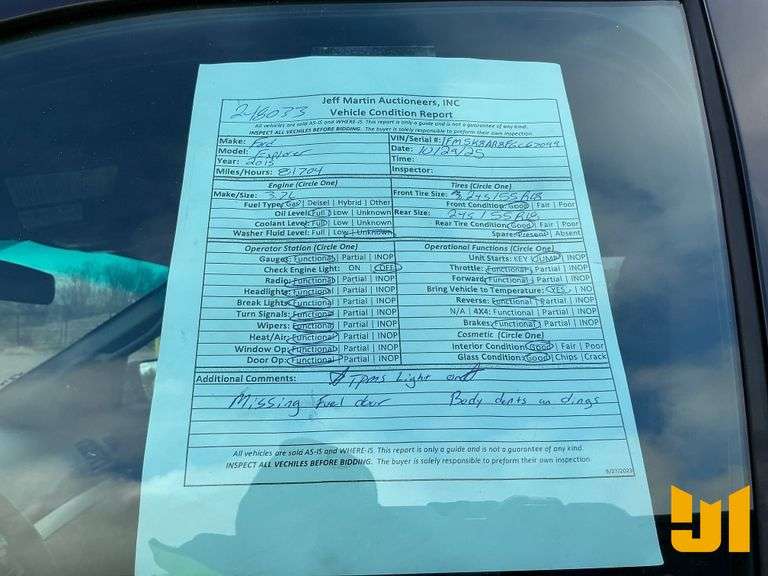 Jeff Martin Auctioneers, INC
248073 Vehicle Condition Report
All vehicles are sold AS-IS and WHERE-IS. This report is only a guide and is not a guarantee of any kind.
INSPECT ALL VECHILES BEFORE BIDDING. The buyer is solely responsible to perform their own inspection
Make: Ford VIN/Serial #:
Model: Explorer Date: 10/29/25
Year: 2015 Time:
Miles/Hours: 81704 Inspector:
Engine (Circle One) Tires (Circle One)
Make/Size: 3.7L Front Tire Size: 245/55R18
Fuel Type: Gas | Deisel | Hybrid | Other Front Condition: Good | Fair | Poor
Oil Level: Full | Low | Unknown Rear Size: 245/55R18
Coolant Level: Full | Low | Unknown Rear Tire Condition: Good | Fair | Poor
Washer Fluid Level: Full | Low | Unknown Spare: Present | Absent
Operator Station (Circle One) Operational Functions (Circle One)
Gauges: Functional | Partial | INOP Unit Starts: KEY | JUMP | INOP
Check Engine Light: ON | OFF Throttle: Functional | Partial | INOP
Radio: Functional | Partial | INOP Forward: Functional | Partial | INOP
Headlights: Functional | Partial | INOP Bring Vehicle to Temperature: YES | NO
Break Lights: Functional | Partial | INOP Reverse: Functional | Partial | INOP
Turn Signals: Functional | Partial | INOP N/A | 4X4: Functional | Partial | INOP
Wipers: Functional | Partial | INOP Brakes: Functional | Partial | INOP
Heat/Air: Functional | Partial | INOP Cosmetic (Circle One)
Window Op: Functional | Partial | INOP Interior Condition: Good | Fair | Poor
Door Op: Functional | Partial | INOP Glass Condition: Good | Chips | Crack
Additional Comments: Tpms Light on
Missing Fuel door Body dents an dings
All vehicles are sold AS-IS and WHERE-IS. This report is only a guide and is not a guarantee of any kind.
INSPECT ALL VECHILES BEFORE BIDDING. The buyer is solely responsible to perform their own inspection